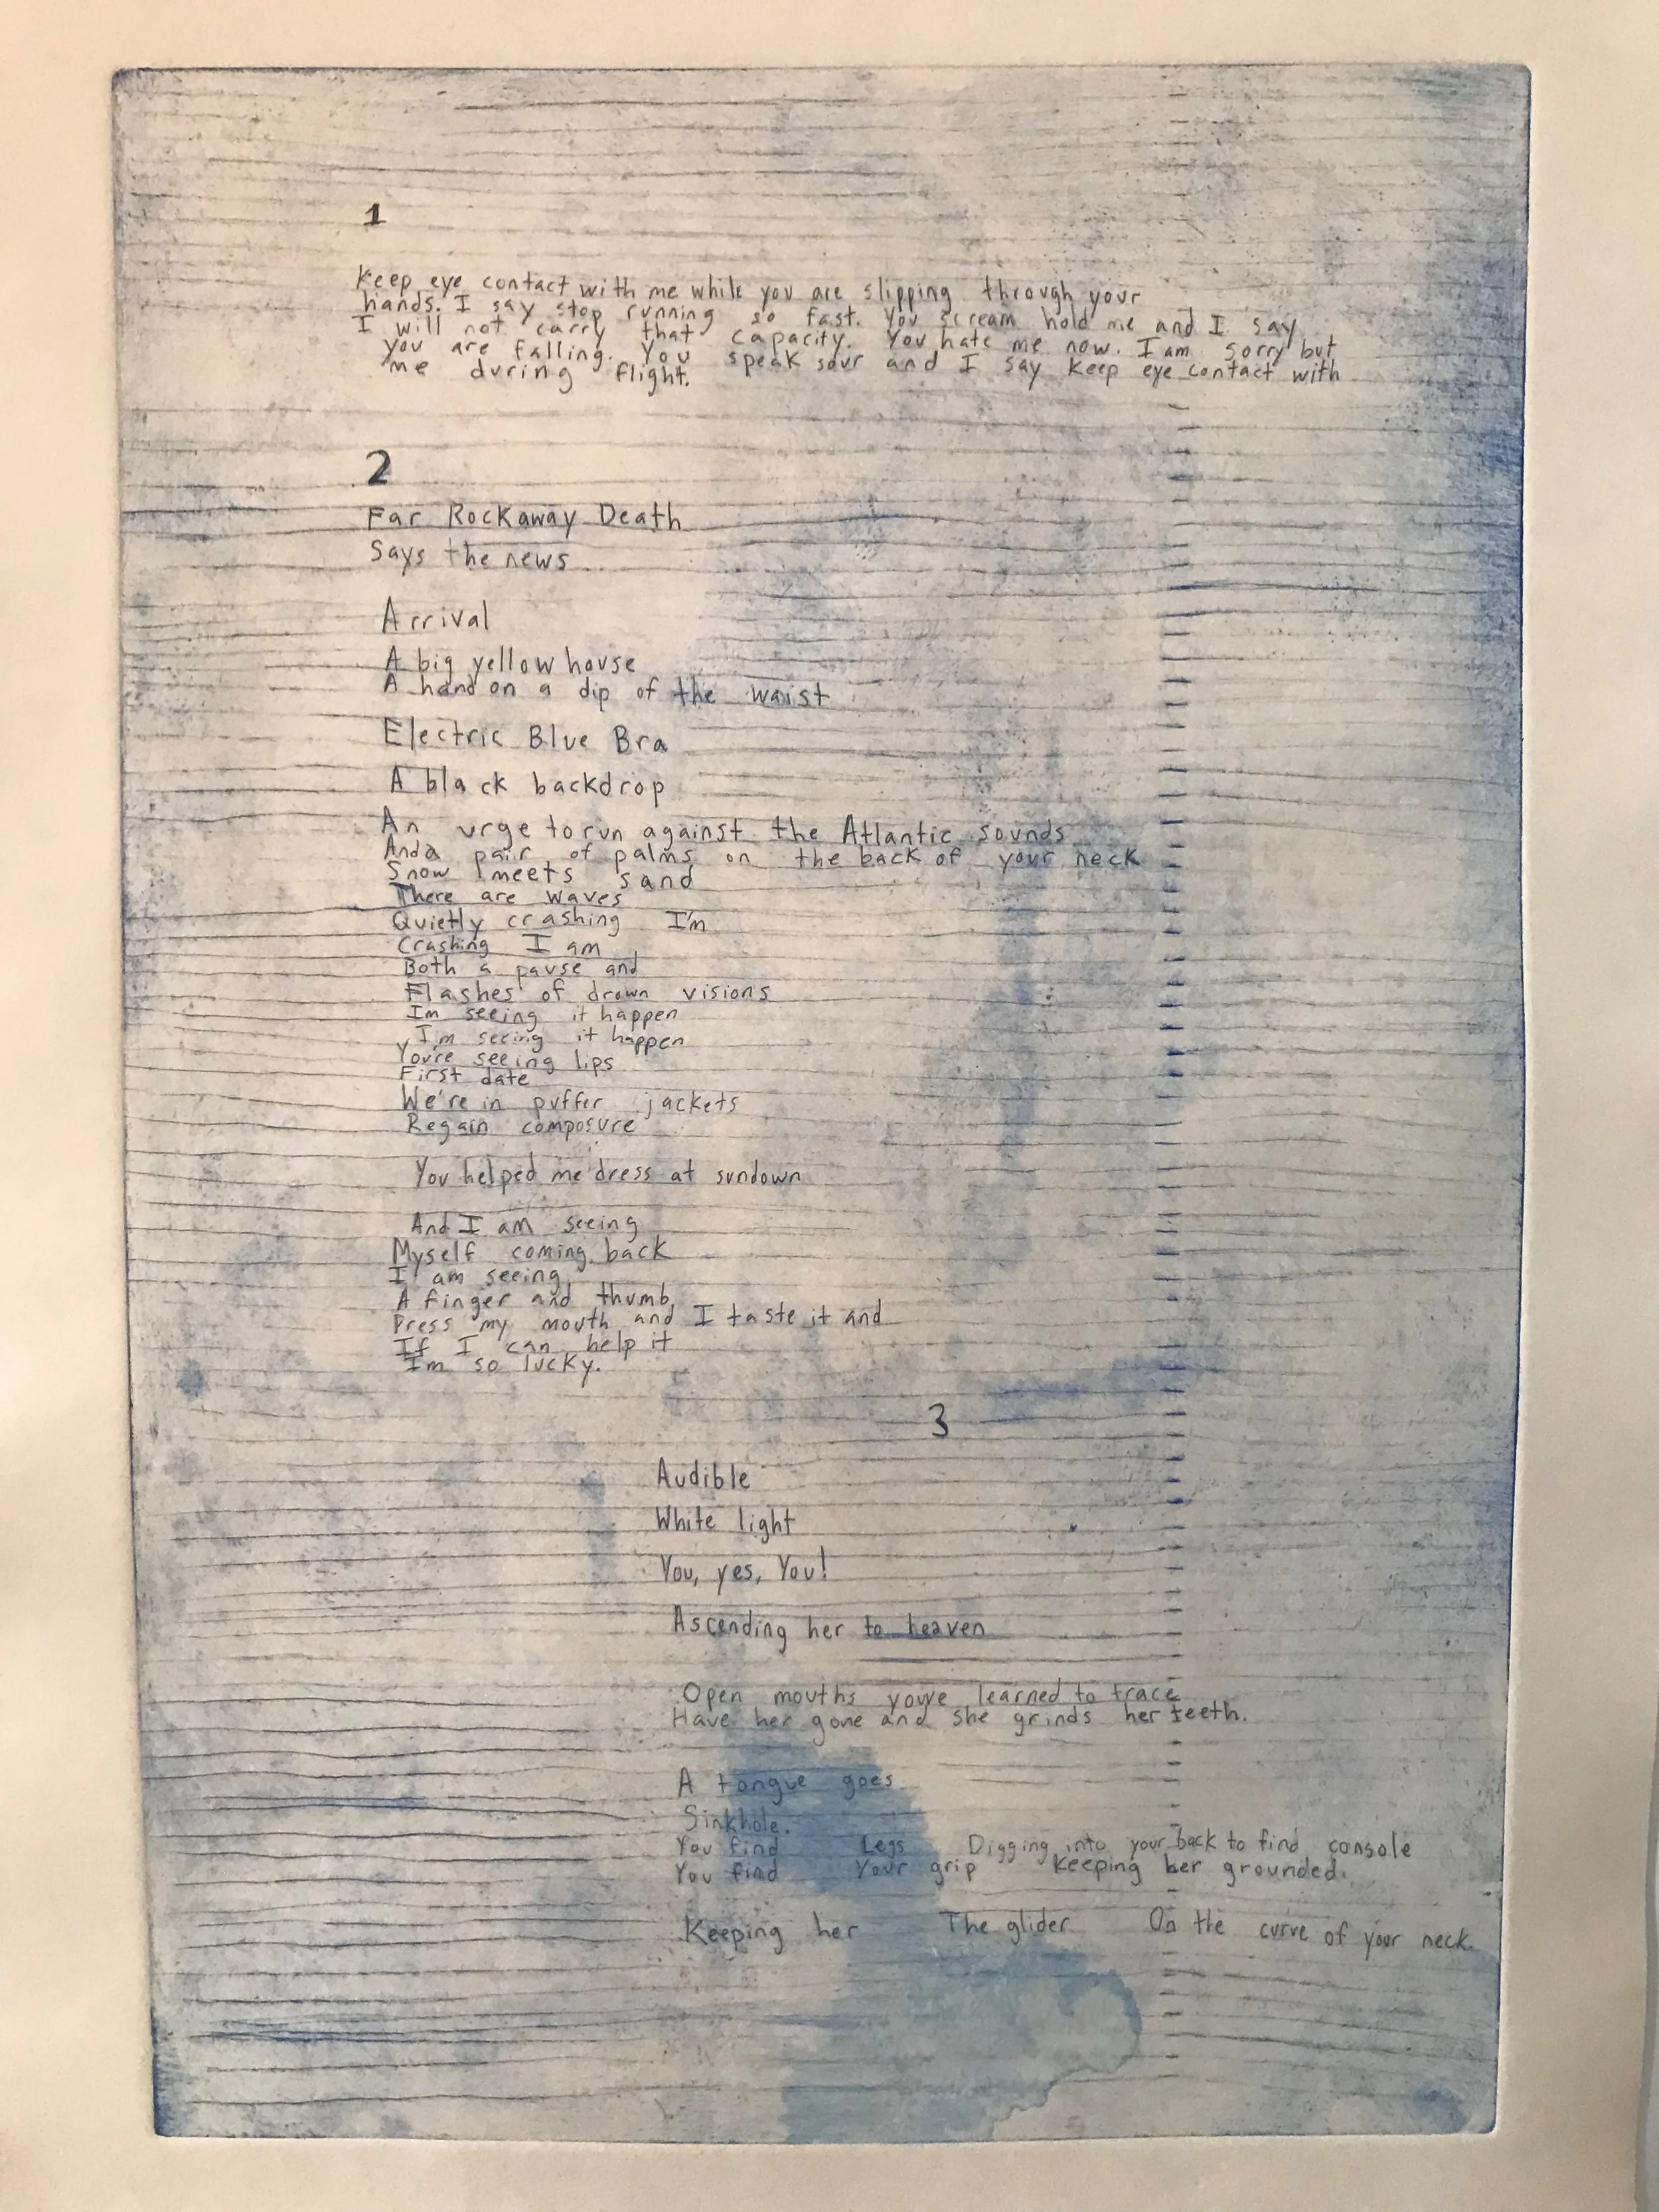 1
Keep eye contact with me while you are slipping through your
hands. I say stop running so fast. You scream hold me and I say
I will not carry that capacity. You hate me now. I am sorry but
you are falling. You speak sour and I say keep eye contact with
me during flight.
2
Far Rockaway Death
Says the news
Arrival
A big yellow house
A hand on a dip of the waist
Electric Blue Bra
A black backdrop
An urge to run against the Atlantic sounds
And a pair of palms on the back of your neck
Snow meets sand
There are waves
Quietly crashing I'm
Crashing I am
Both a pause and
Flashes of drown visions
Im seeing it happen
I'm seeing it happen
You're seeing lips
First date
We're in puffer jackets
Regain composure
You helped me dress at sundown
And I am seeing
Myself coming back
I am seeing
A finger and thumb
Press my mouth and I taste it and
If I can help it
Im so lucky.
3
Audible
White light
You, yes, You!
Ascending her to heaven
Open mouths youve learned to trace
Have her gone and she grinds her teeth.
A tongue goes
Sinkhole.
You find Legs Digging into your back to find console
You find Your grip Keeping her grounded.
Keeping her The glider On the curve of your neck.